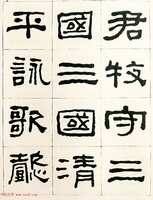 君牧守三
國三國清
平詠歌懿